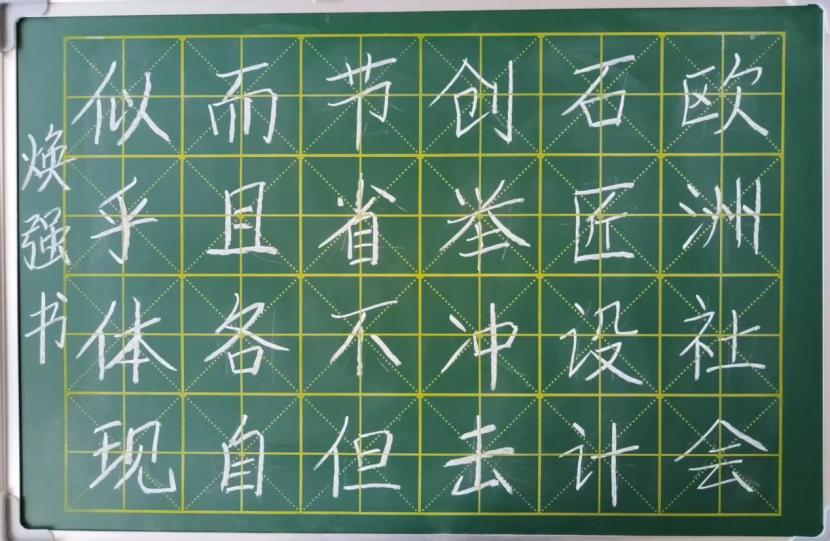 欧洲社会
石匠设计
创举冲去
节省不但
而且各自
似乎体现
焕强书